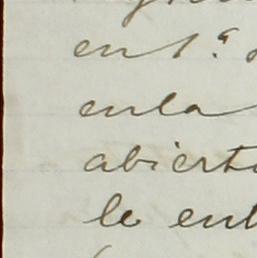 en 1.ª
en la
abierto
le ent